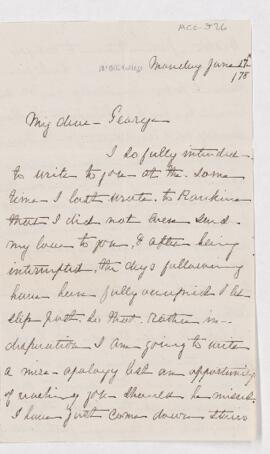 ACC-826
McGill College
Monday June 17th
/78
My dear George
I so fully intended
to write to you at the same
time I last wrote to Rankine
that I did not even send
my love to you, & after being
interrupted, the days following
have been fully occupied I let
slip past. So that rather in
desperation I am going to write
a mere apology lest an opportunity
of reaching you should be missed.
I have just come down stairs